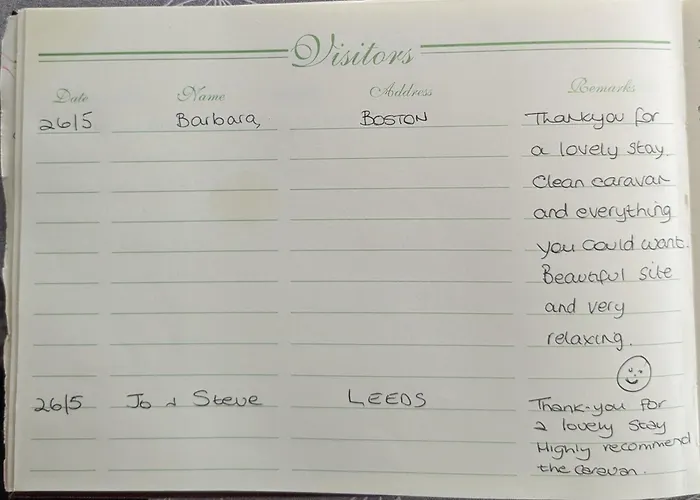 Visitors
Date Name Address Remarks
26/5 Barbara, BOSTON Thankyou for
a lovely stay.
Clean caravan
and everything
you could want.
Beautiful site
and very
relaxing.
26/5 Jo & Steve LEEDS Thank-you for
a lovely stay
Highly recommend
the caravan.